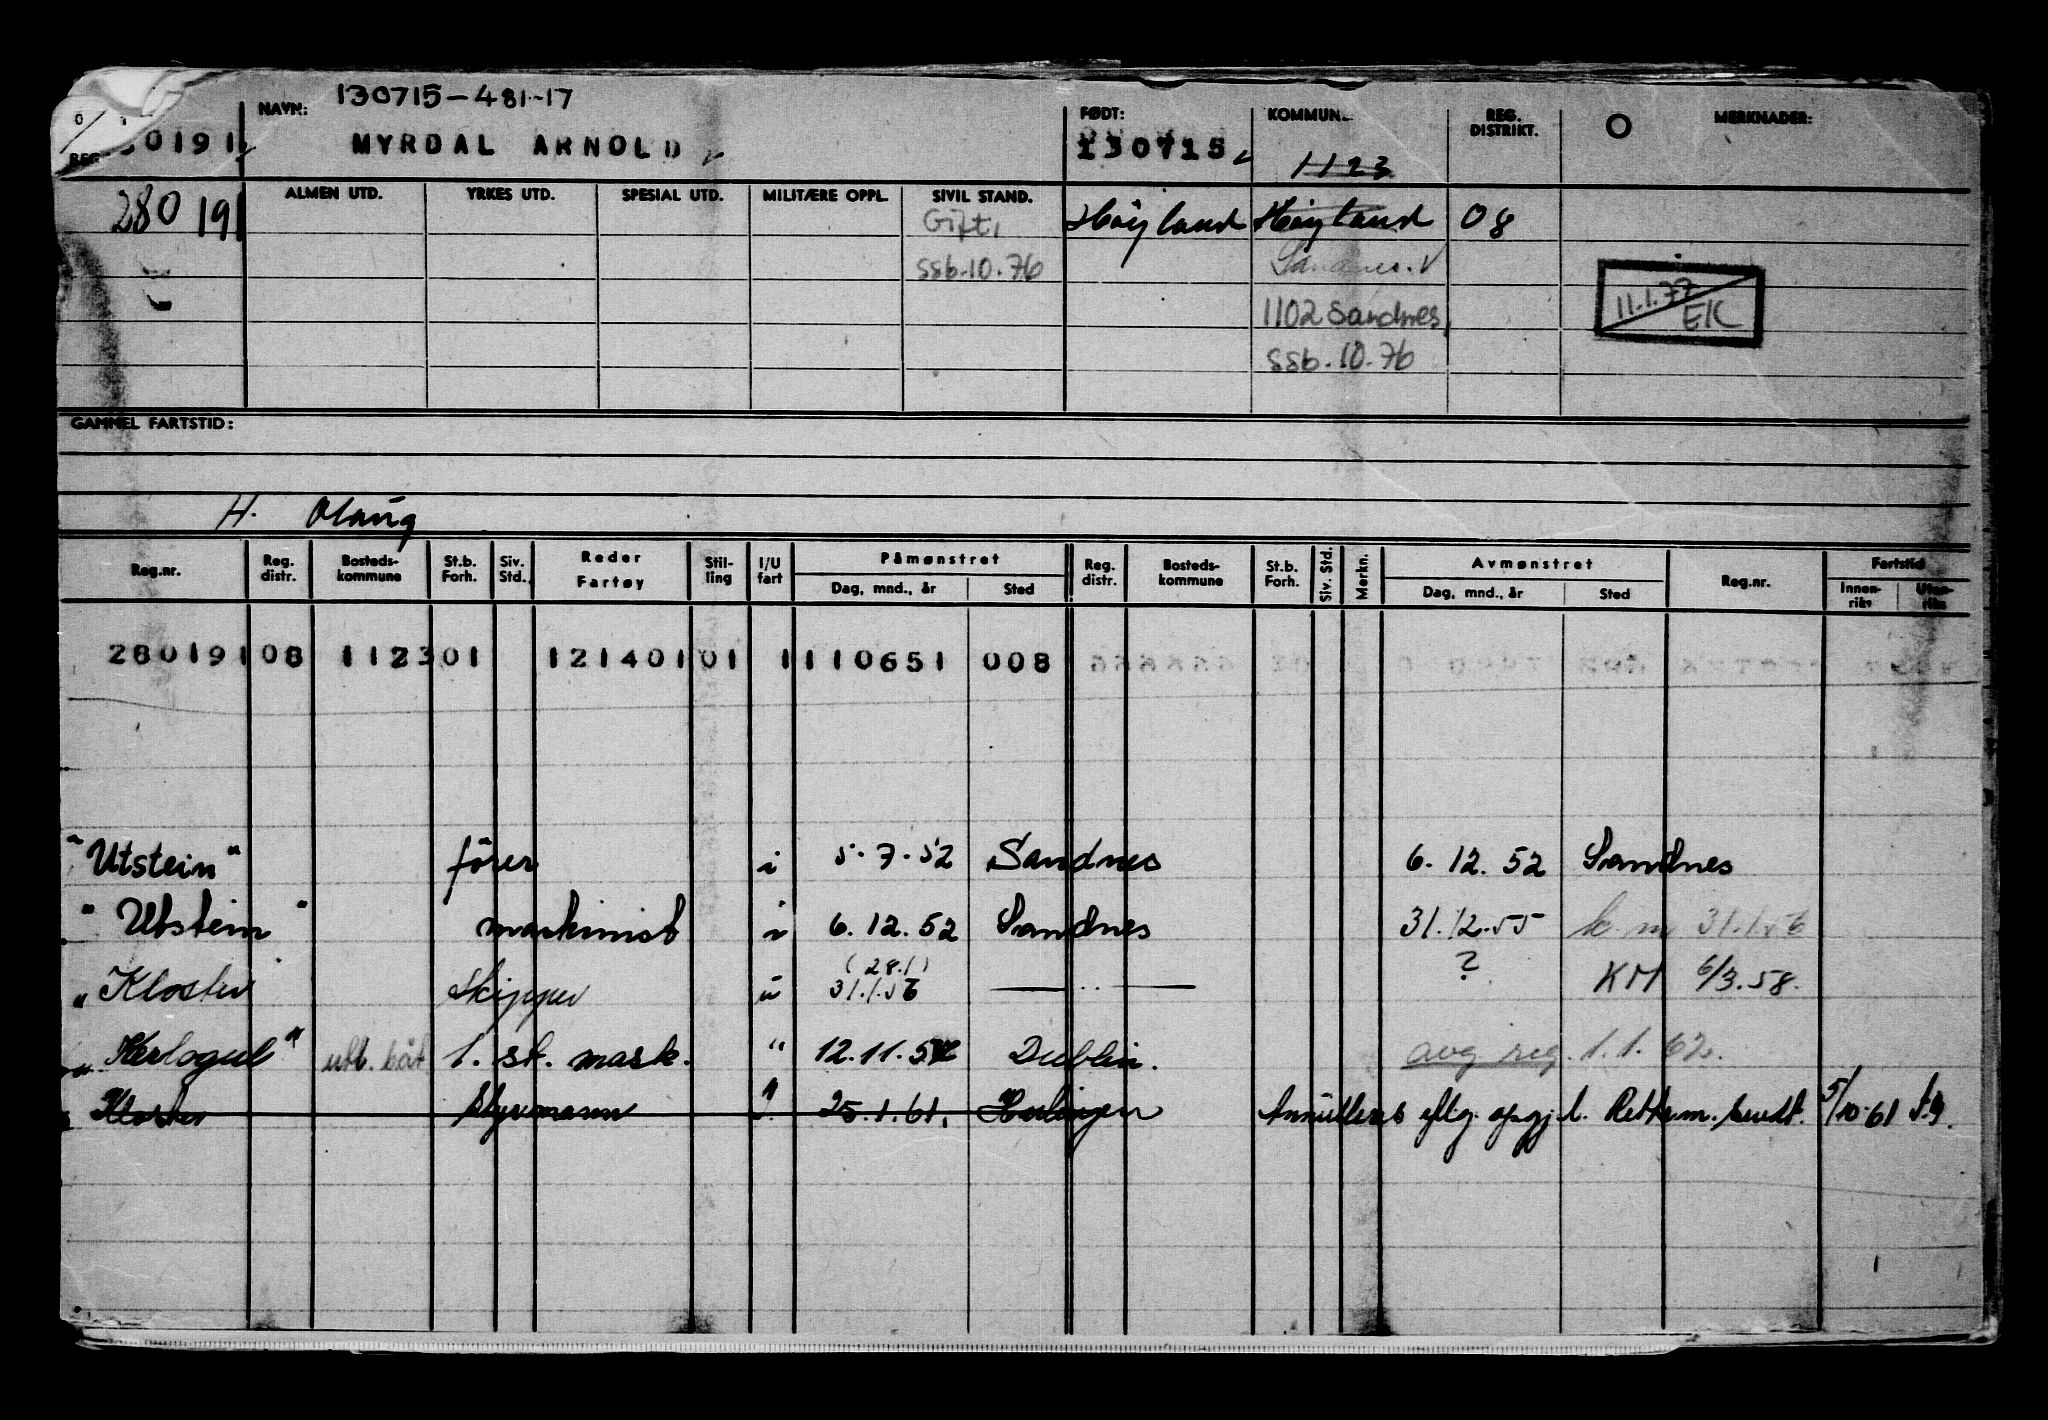 130715-481-17
NAVN: MYRDAL ARNOLD
FØDT: 130715
KOMMUNE 1123
REG. DISTRIKT.
O
MERKNADER:
0191
280191
ALMEN UTD. YRKES UTD. SPESIAL UTD. MILITÆRE OPPL. SIVIL STAND.
Gift,
ssb.10.76
Høyland Høyland 08
Sandnes.
1102 Sandnes,
ssb.10.76
11.1.77
EK
GAMMEL FARTSTID:
H. Olaug
Reg.nr. Reg. distr. Bosteds-kommune St.b. Forh. Siv. Std. Reder Fartøy Stil-ling I/U fart Påmønstret Dag, mnd., år Sted Reg. distr. Bosteds-kommune St.b. Forh. Siv. Std. Merkn. Avmønstret Dag, mnd., år Sted Reg.nr. Fartstid Innen-riks Uten-riks
280191 08 1123 01 121401 01 1 110651 008
"Utstein" förer i 5.7.52 Sandnes 6.12.52 Sandnes
"Utstein" maskinist i 6.12.52 Sandnes 31.12.55 k.m 31.1.56
(28.1)
"Kloster Skipper u 31.1.56 — " — ? KM 6/3.58.
"Kerlogue" utl. båt 1. sk. mask. " 12.11.57 Dublin. avg. reg. 1.1.62.
Kloster styrmann " 25.1.61. Annulleres oppgj. 5/10-61